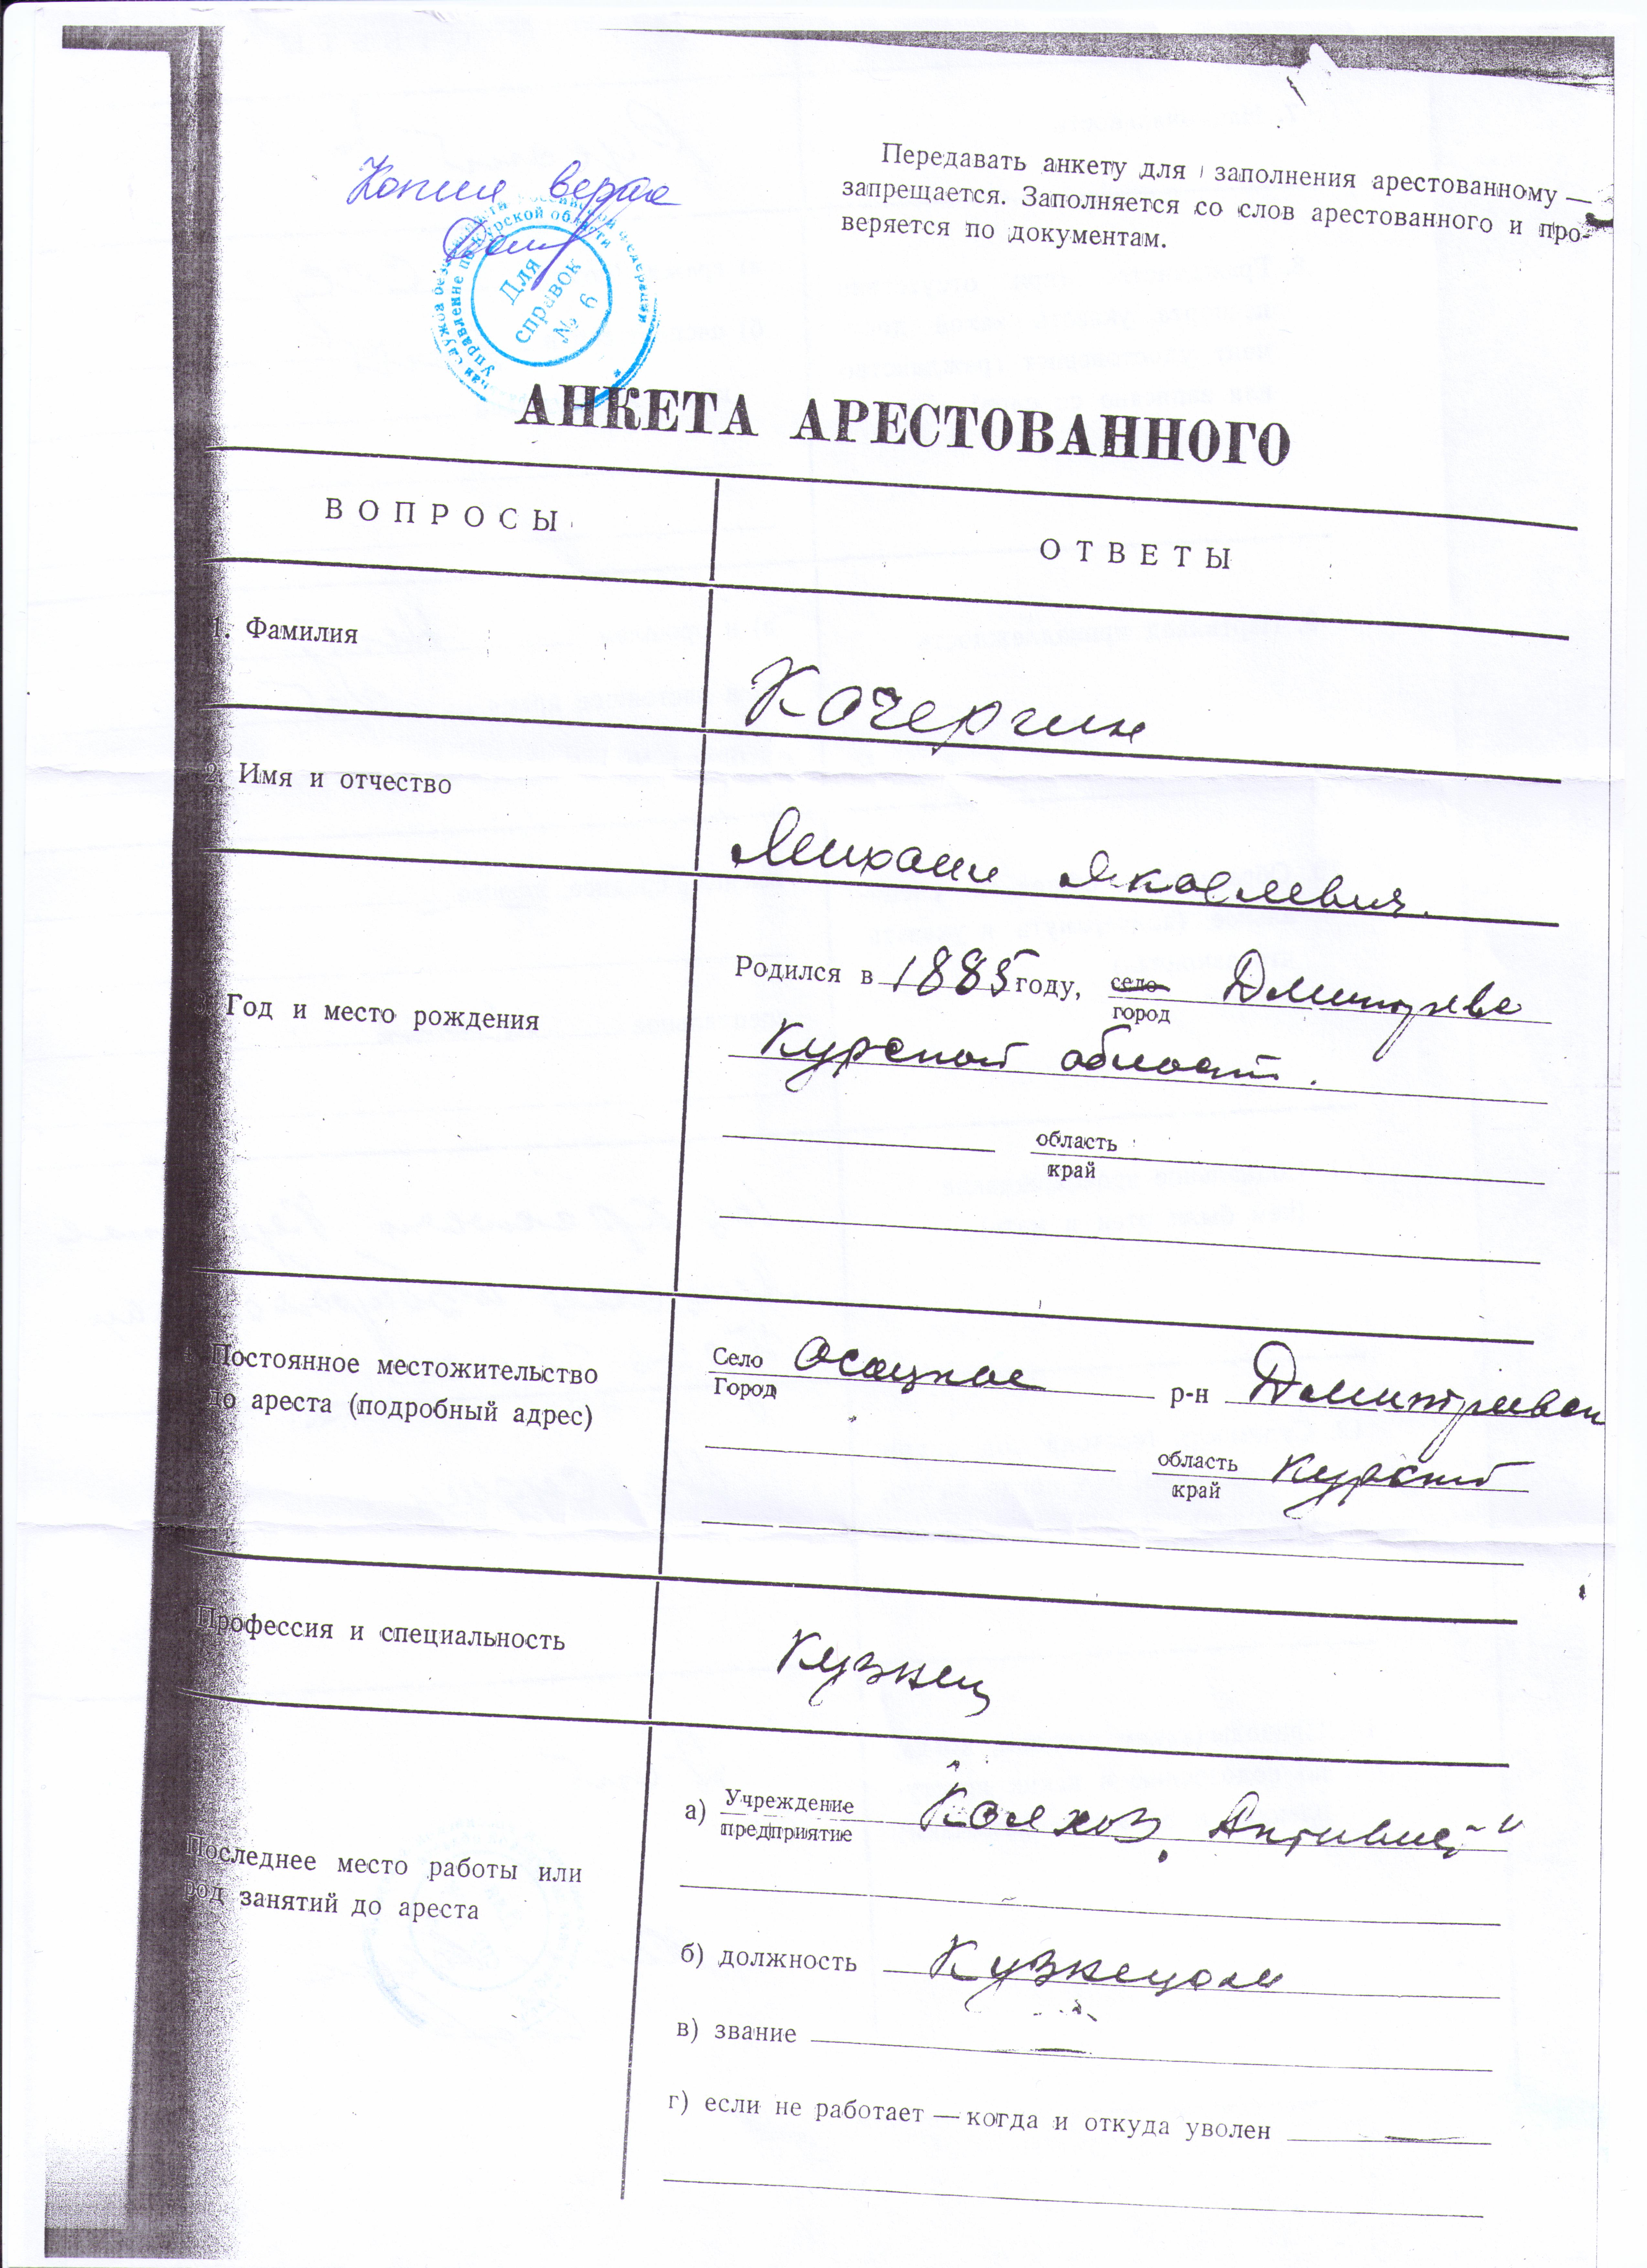 Передавать анкету для заполнения арестованному —
запрещается. Заполняется со слов арестованного и про-
веряется по документам.
Копия верна
Управление по Курской области
Российской Федерации
Для
справок
№ 6
АНКЕТА АРЕСТОВАННОГО
ВОПРОСЫ
ОТВЕТЫ
1. Фамилия
Кочергин
2. Имя и отчество
Михаил Яковлевич.
Год и место рождения
Родился в 1885 году, село
город
Курской област.
область
край
Постоянное местожительство
до ареста (подробный адрес)
Село
Город
р-н
область
край
Профессия и специальность
Кузнец
Последнее место работы или
род занятий до ареста
а) Учреждение
предприятие
Колхоз
б) должность Кузнецом
в) звание —
г) если не работает — когда и откуда уволен —